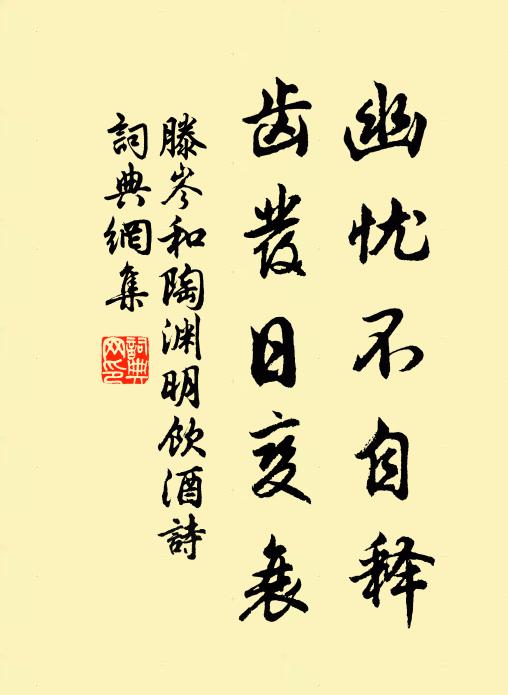 幽忧不自释
齿發日变衰
滕岑和陶渊明飲酒詩
詞典網集
詞典网印